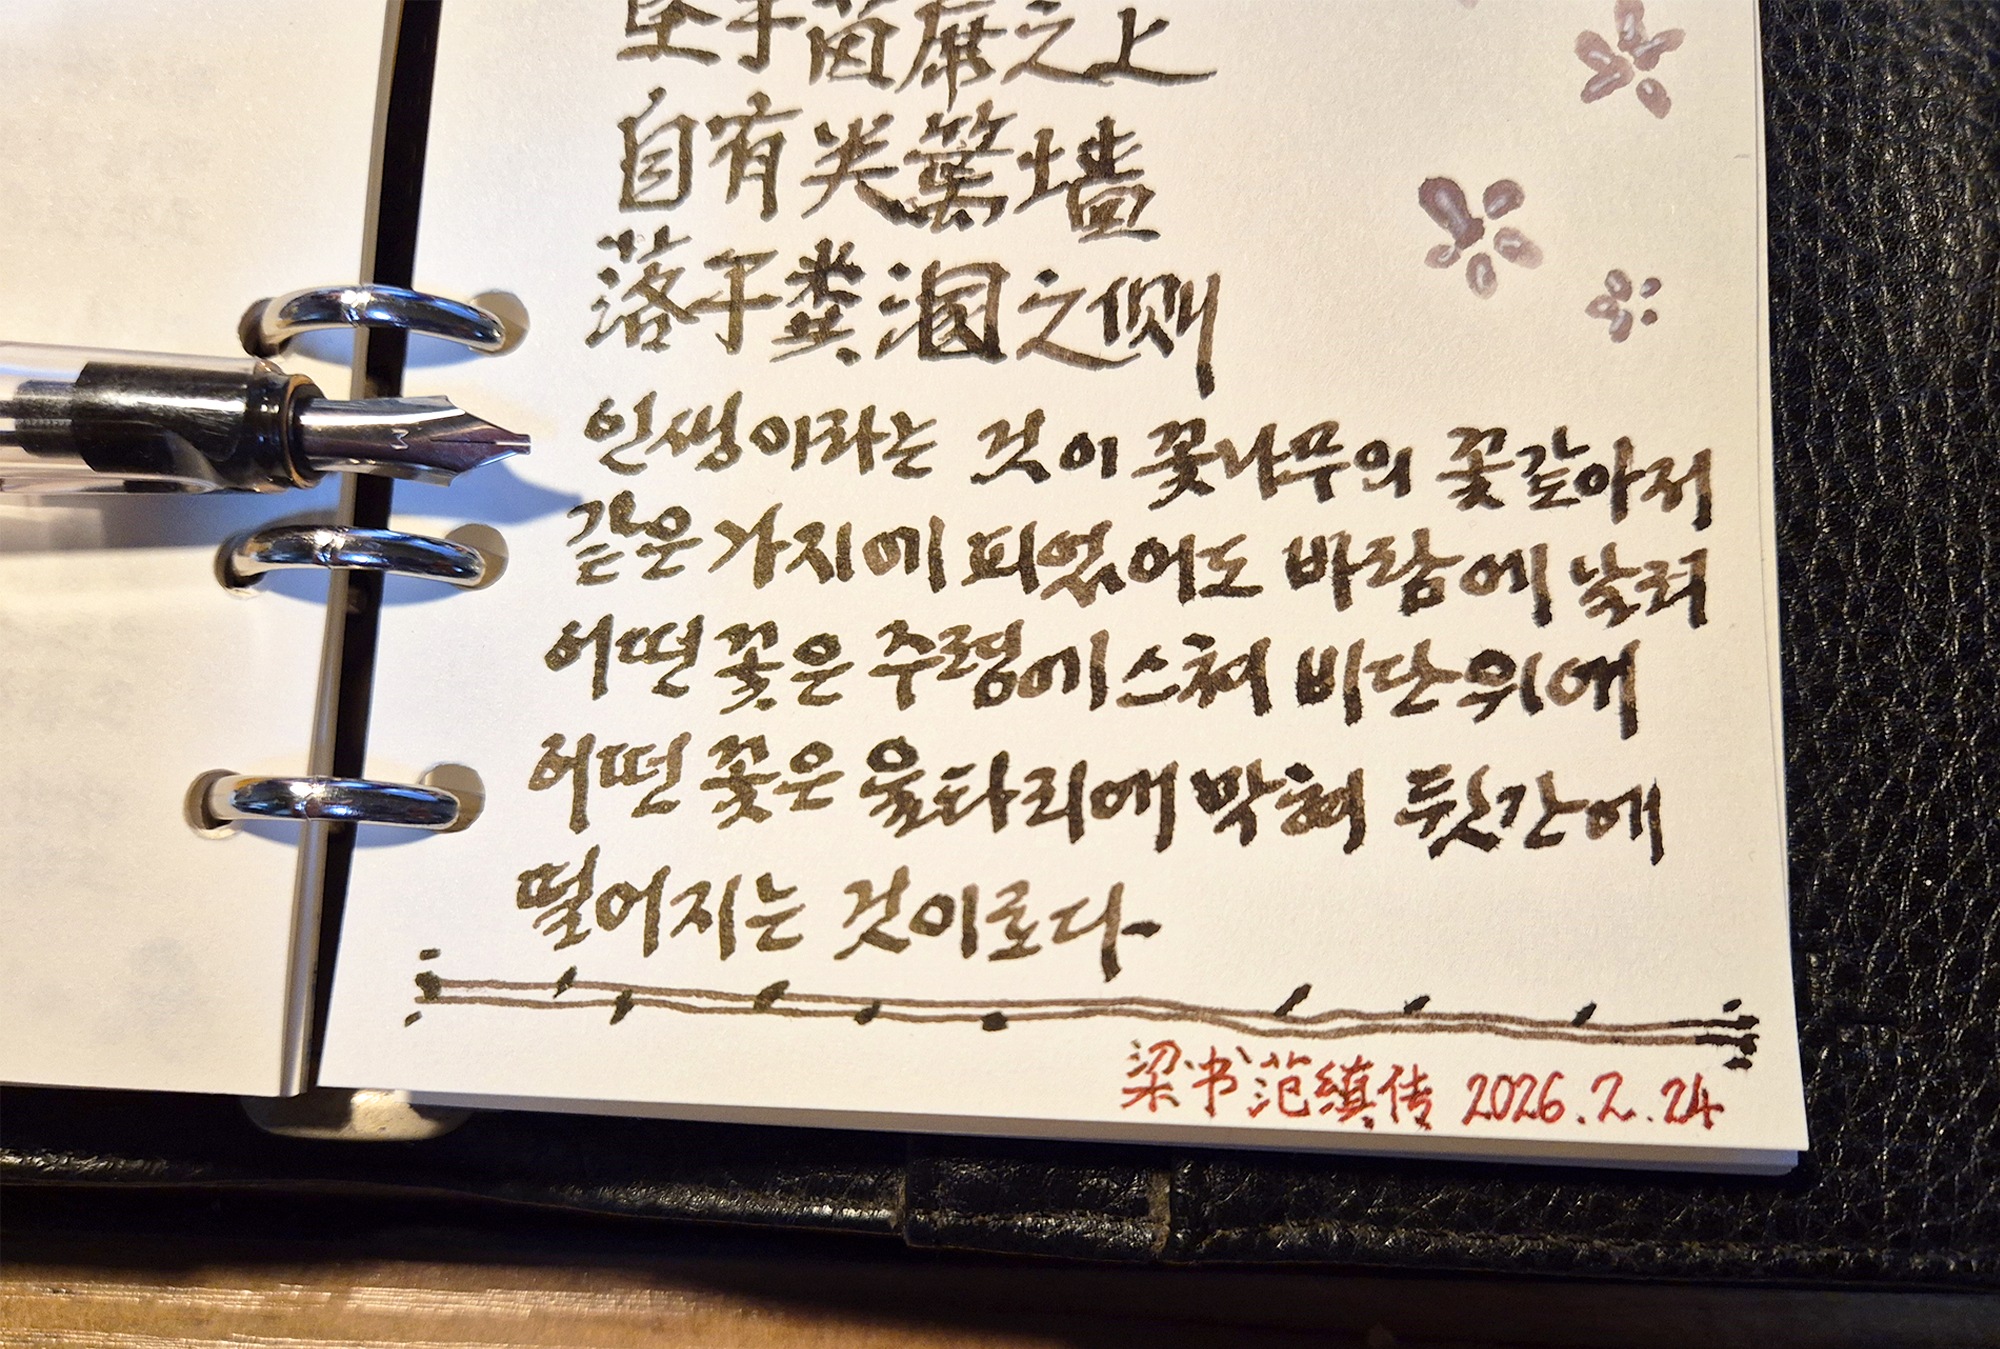 坠于茵席之上
自有关篱墙
落于粪溷之侧
인생이라는 것이 꽃나무의 꽃같아서
같은 가지에 피었어도 바람에 날려
어떤 꽃은 주렴에 스쳐 비단위에
어떤 꽃은 울타리에 막혀 뒷간에
떨어지는 것이로다
梁书范缜传 2026.2.24
M